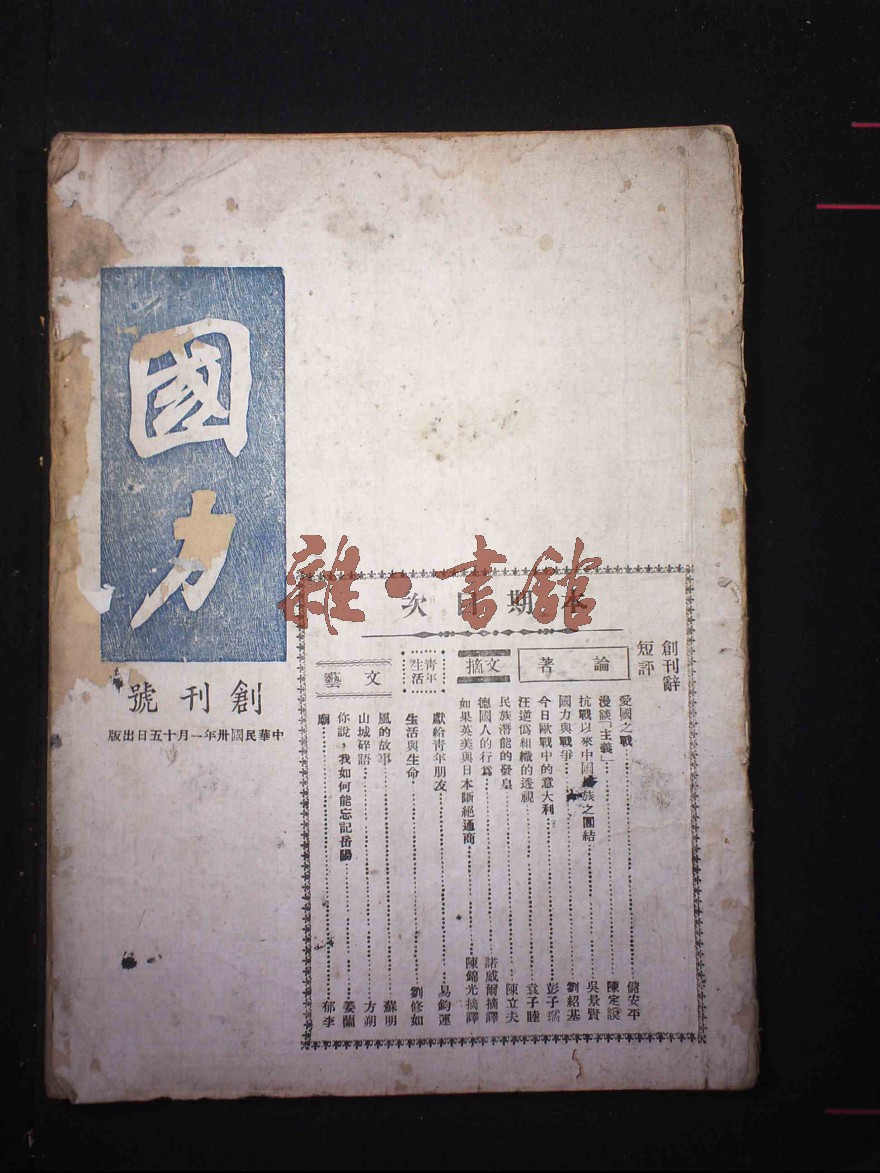 國力
創刊號
中華民國卅年一月十五日出版
雜·書館
本期目次
創刊辭
短評
論著
愛國之戰 儲安平
漫談「主義」 陳定謨
抗戰以來中國民族之團結 吳景賢
國力與戰爭 劉紹基
今日歐戰中的意大利 彭子瑀
汪逆僞組織的透視 袁子睦
民族潛能的發皇 陳立夫
文摘
德國人的行爲 諾威爾摘譯
如果英美與日本斷絕通商 陳錦光摘譯
青年生活
獻給青年朋友 易鈞運
生活與生命 劉修如
文藝
風的故事 蘇明
山城碎語 方朔
你說，我如何能忘記岳陽 姜蘭
廟 郁李